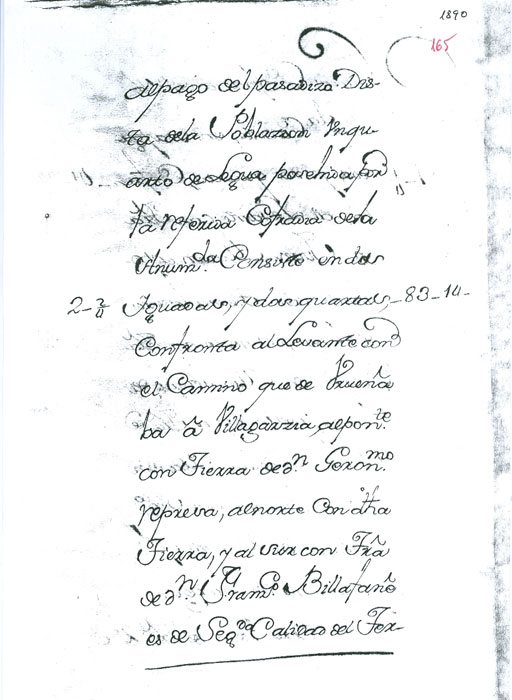 1890
165
al pago del pasadizo Dis-
ta dela Poblazion vnqu-
arto de Legua poseelica por
la referiva Cofradia dela
Anum.da Consiste en dos
2-2/4 Iguadas, y dos quartas, -83-14-
Confronta al Levante con
el Camino que de Urueña
ba â Villagarzia, alpon.te
con Tierra de d.n Geron.mo
represa, al norte Con dha
Tierra, y al sur con Trâ
de d.n Fran.co Billafañe
es de Seg.da Calidad del Ter-